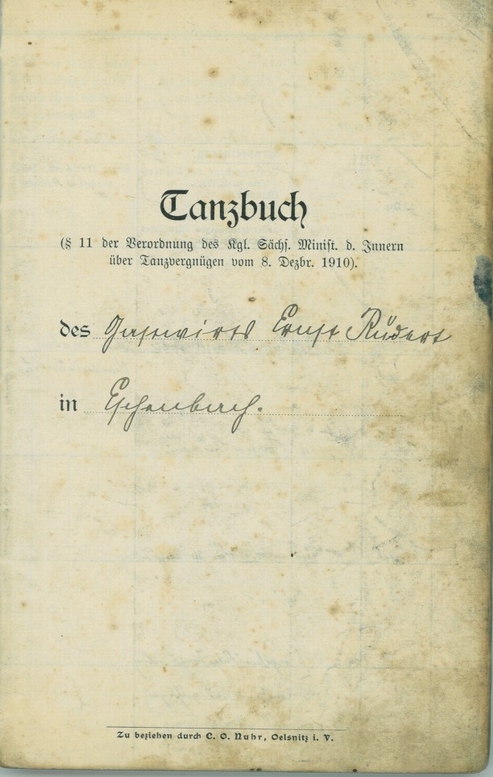 Tanzbuch
(§ 11 der Verordnung des Kgl. Sächs. Minist. d. Innern
über Tanzvergnügen vom 8. Dezbr. 1910).
des Gastwirts Ernst Rüdert
in Eschenbach.
Zu beziehen durch C. O. Nuhr, Oelsnitz i. V.